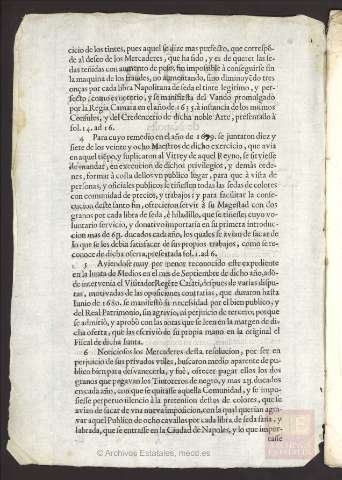 cicio de los tintes, pues aquel se dize mas prefecto, que correspõ-
de al deseo de los Mercaderes, que ha sido, y es de querer las se-
das teñidas con aumento de peso, sin imposible à conseguirse sin
la maquina de los fraudes, no aumentando, sino diminuyẽdo tres
onças por cada libra Napolitana de seda el tinte legitimo, y per-
fecto, como es notorio, y se manifiesta del Vando promulgado
por la Regia Camara en el año de 1635. à instancia de los mismos
Consules, y del Credencero de dicha noble Arte, presentado à
fol. 14. ad 16.
4 Para cuyo remedio en el año de 1679. se juntaron diez y
siete de los veinte y ocho Maestros de dicho exercicio, que avia
en aquel tiẽpo, y suplicaron al Virrey de aquel Reyno, se sirviesse
de mandar, en execucion de dichos privilegios, y demàs orde-
nes, formar à costa dellos vn publico lugar, para que à vista de
personas, y oficiales publicos se tiñessen todas las sedas de colores
con comunidad de precios, y trabajos y para facilitar la conse-
cucion deste tanto fin, ofrecieron servir à su Magestad con dos
granos por cada libra de seda, ò hiladillo, que se tiñesse, cuyo vo-
luntario servicio, y donativo importaria en su primera introduc-
cion mas de 6y. ducados cada año, los quales se avian de sacar de
lo que se les debia satisfacer de sus propios trabajos, como se re-
conoce de dicha oferta, presentada fol. 1. ad 6.
5 Aviendose muy por menor reconocido este expediente
en la Iunta de Medios en el mes de Septiembre de dicho año, adõ-
de intervenia el Visitador Regẽte Casati, despues de varias dispu-
tas, motivadas de las oposiciones contrarias, que duraron hasta
Iunio de 1680. se manifestò su necessidad por el bien publico, y
del Real Patrimonio, sin agravio, ni perjuizio de tercero, porque
se admitiò, y aprobò con las notas que se leen en la margen de di-
cha oferta, que las escriviò de su propia mano en la original el
Fiscal de dicha Iunta.
6 Noticiosos los Mercaderes desta resolucion, por ser en
perjuizio de sus privados vtiles, buscaron medio aparente de pu-
blico bien para desvanecerla, y fuè, ofrecer pagar ellos los dos
granos que pagavan los Tintoreros de negro, y mas 2y. ducados
en cada año, con que se quitasse aquella Comunidad, y se impo-
siesse perpetuo silencio à la pretension destas de colores, que le
avian de sacar de vna nueva imposicion, con la qual querian agra-
var aquel Publico de ocho cavallos por cada libra, de seda, y
labrada, que se entrasse en la Ciudad de Napoles, y lo que impor-
tasse
© Archivos Estatales, mecd.es